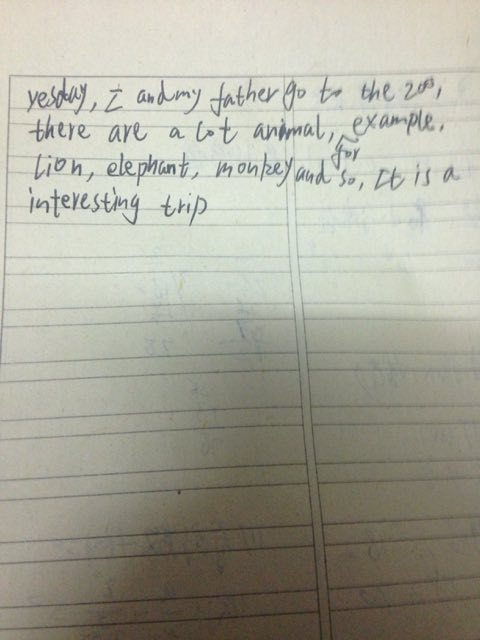 yesday, I and my father go to the zoo,
there are a lot animal, for example,
lion, elephant, monkey and so, It is a
interesting trip